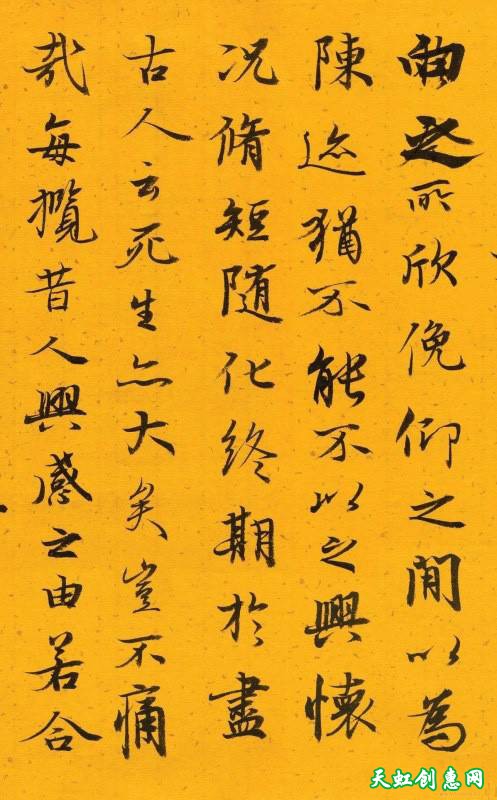 向之所欣俛仰之閒以為
陳迹猶不能不以之興懷
况脩短随化終期於盡
古人云死生亦大矣豈不痛
哉每攬昔人興感之由若合
天虹创惠网